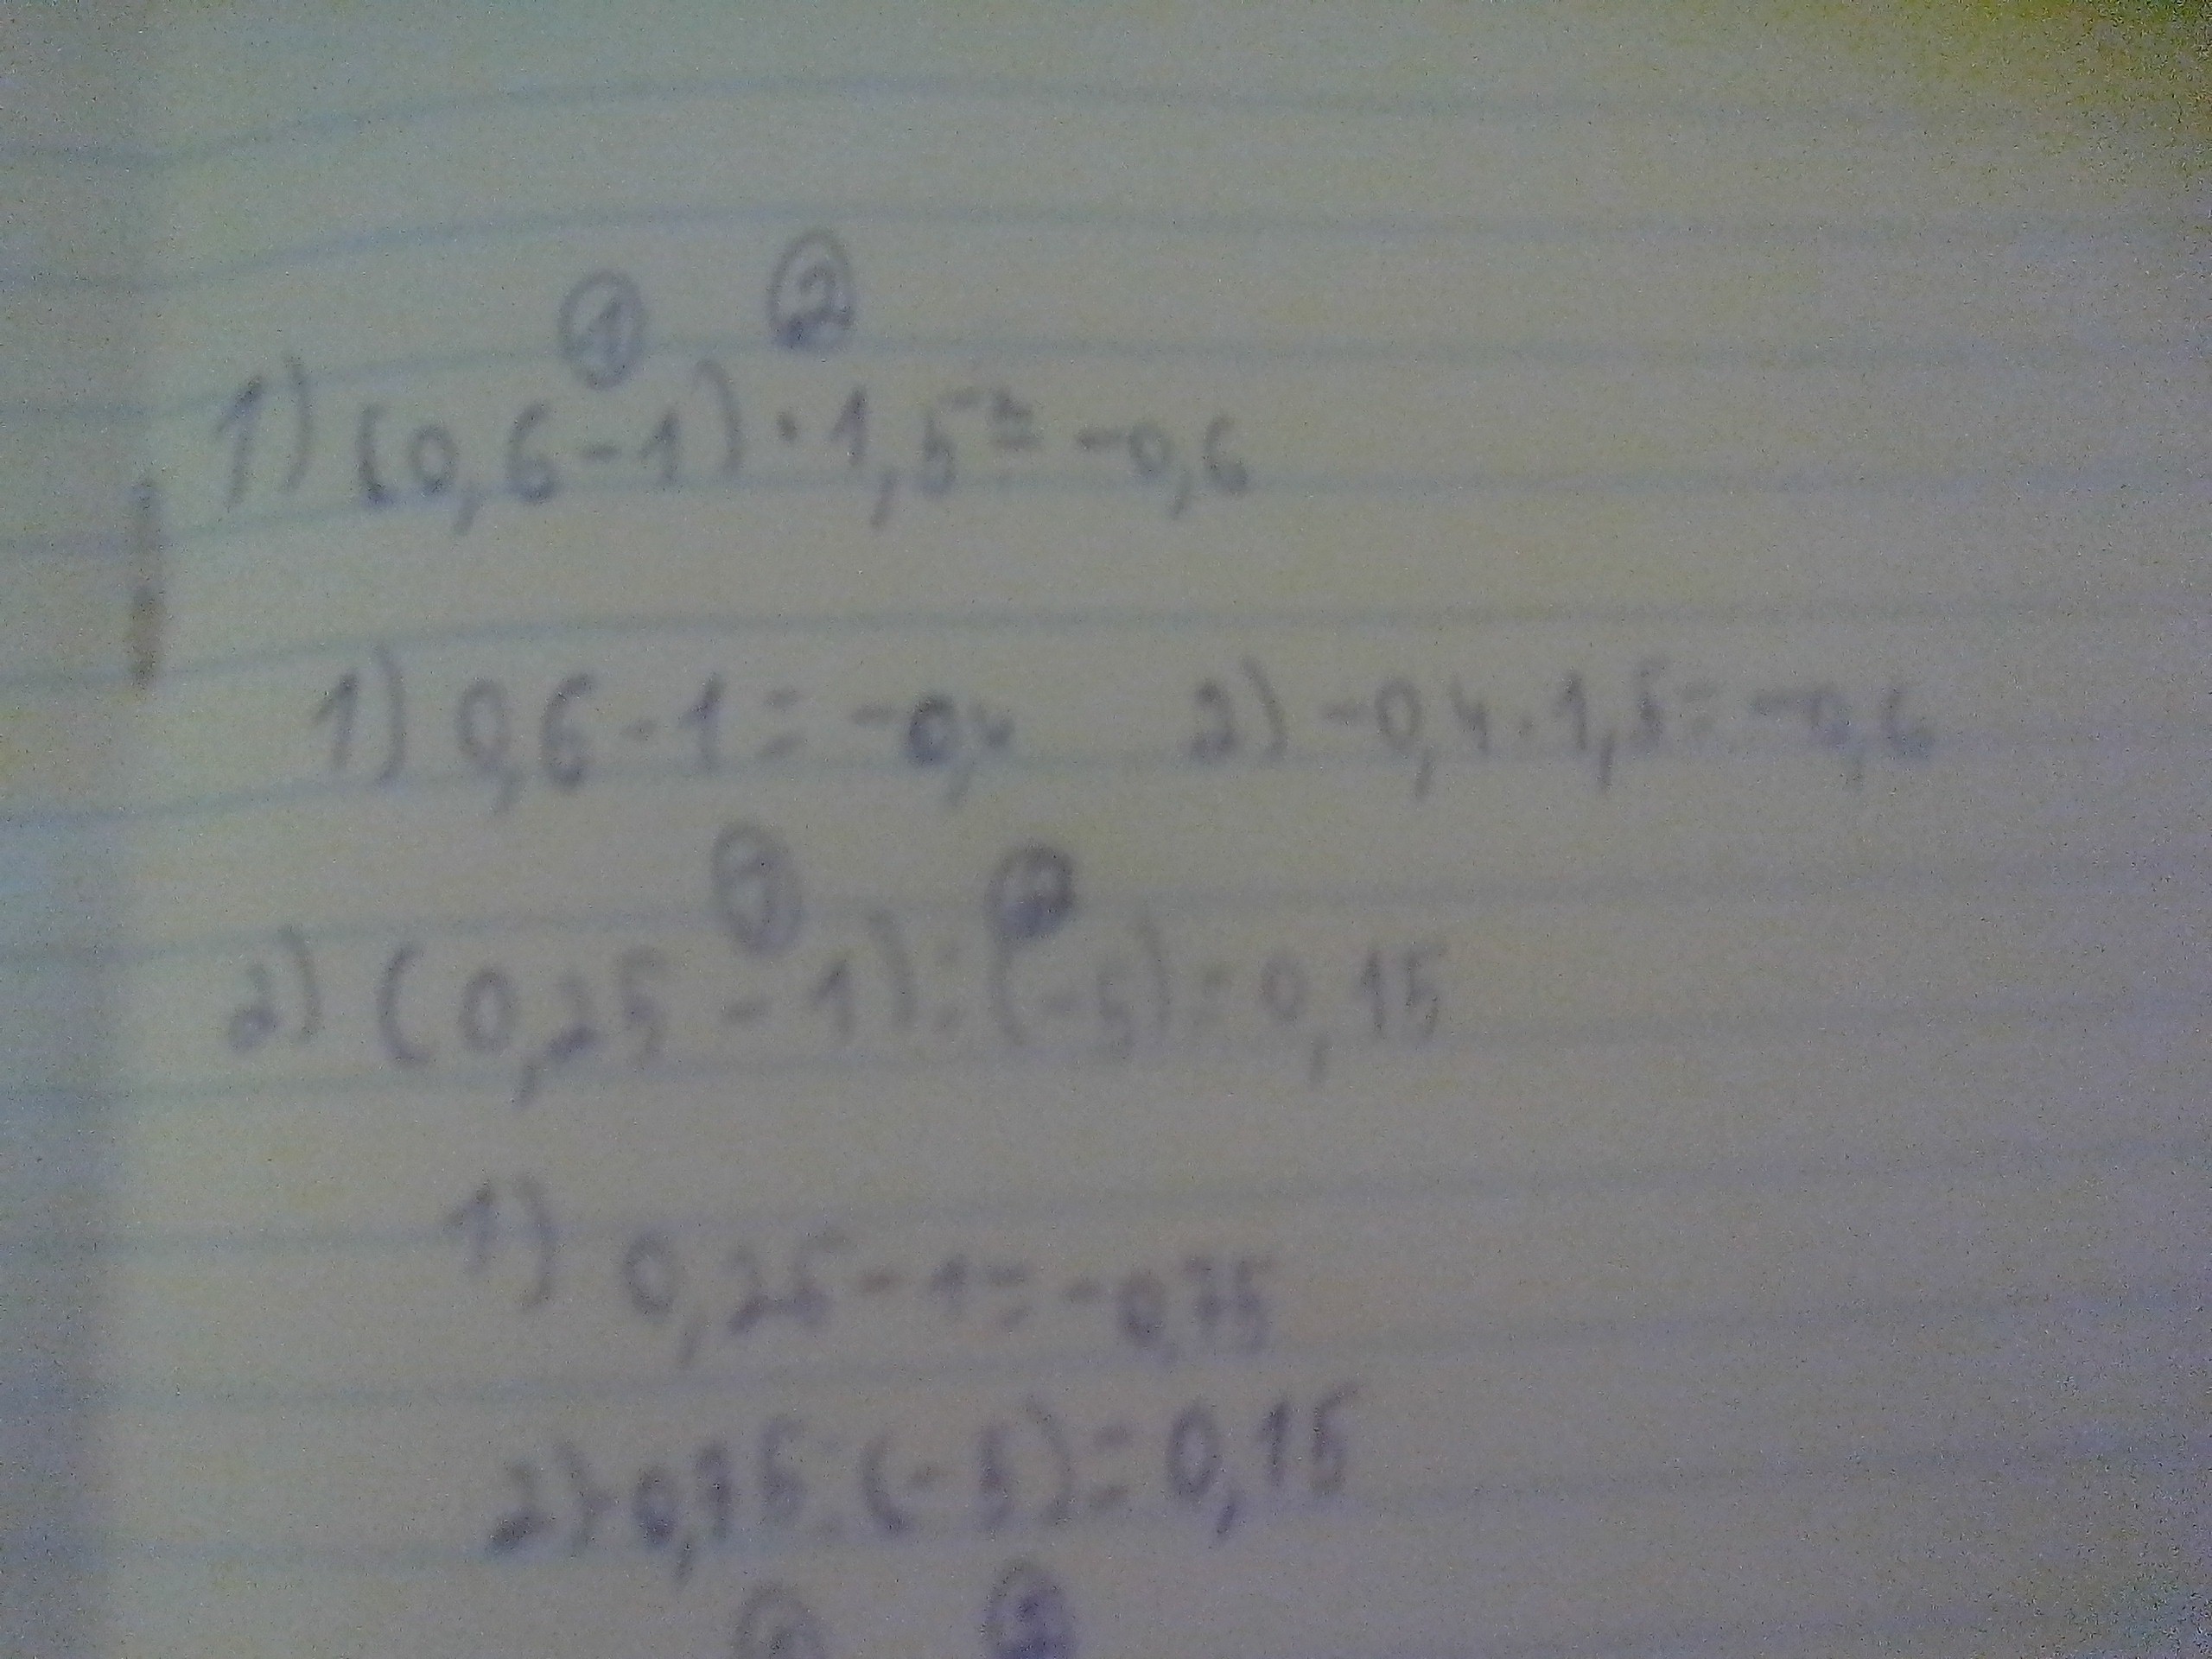 ① ②
1) (0,6-1)·1,5= -0,6
1) 0,6-1= -0,4 2) -0,4·1,5= -0,6
① ②
2) (0,25-1):(-5)=0,15
1) 0,25-1= -0,75
2) -0,75:(-5)=0,15